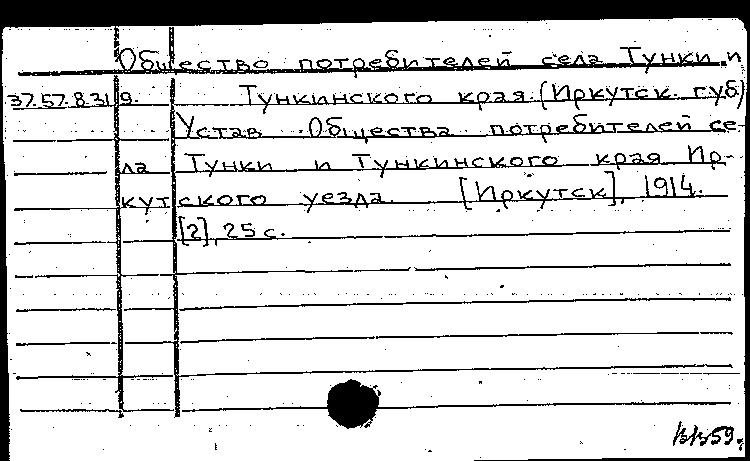 Общество потребителей села Тунки и
37.57.8.319. Тункинского края (Иркутск. губ)
Устав Общества потребителей се-
ла Тунки и Тункинского края Ир-
кутского уезда. [Иркутск], 1914.
[2], 25 с.